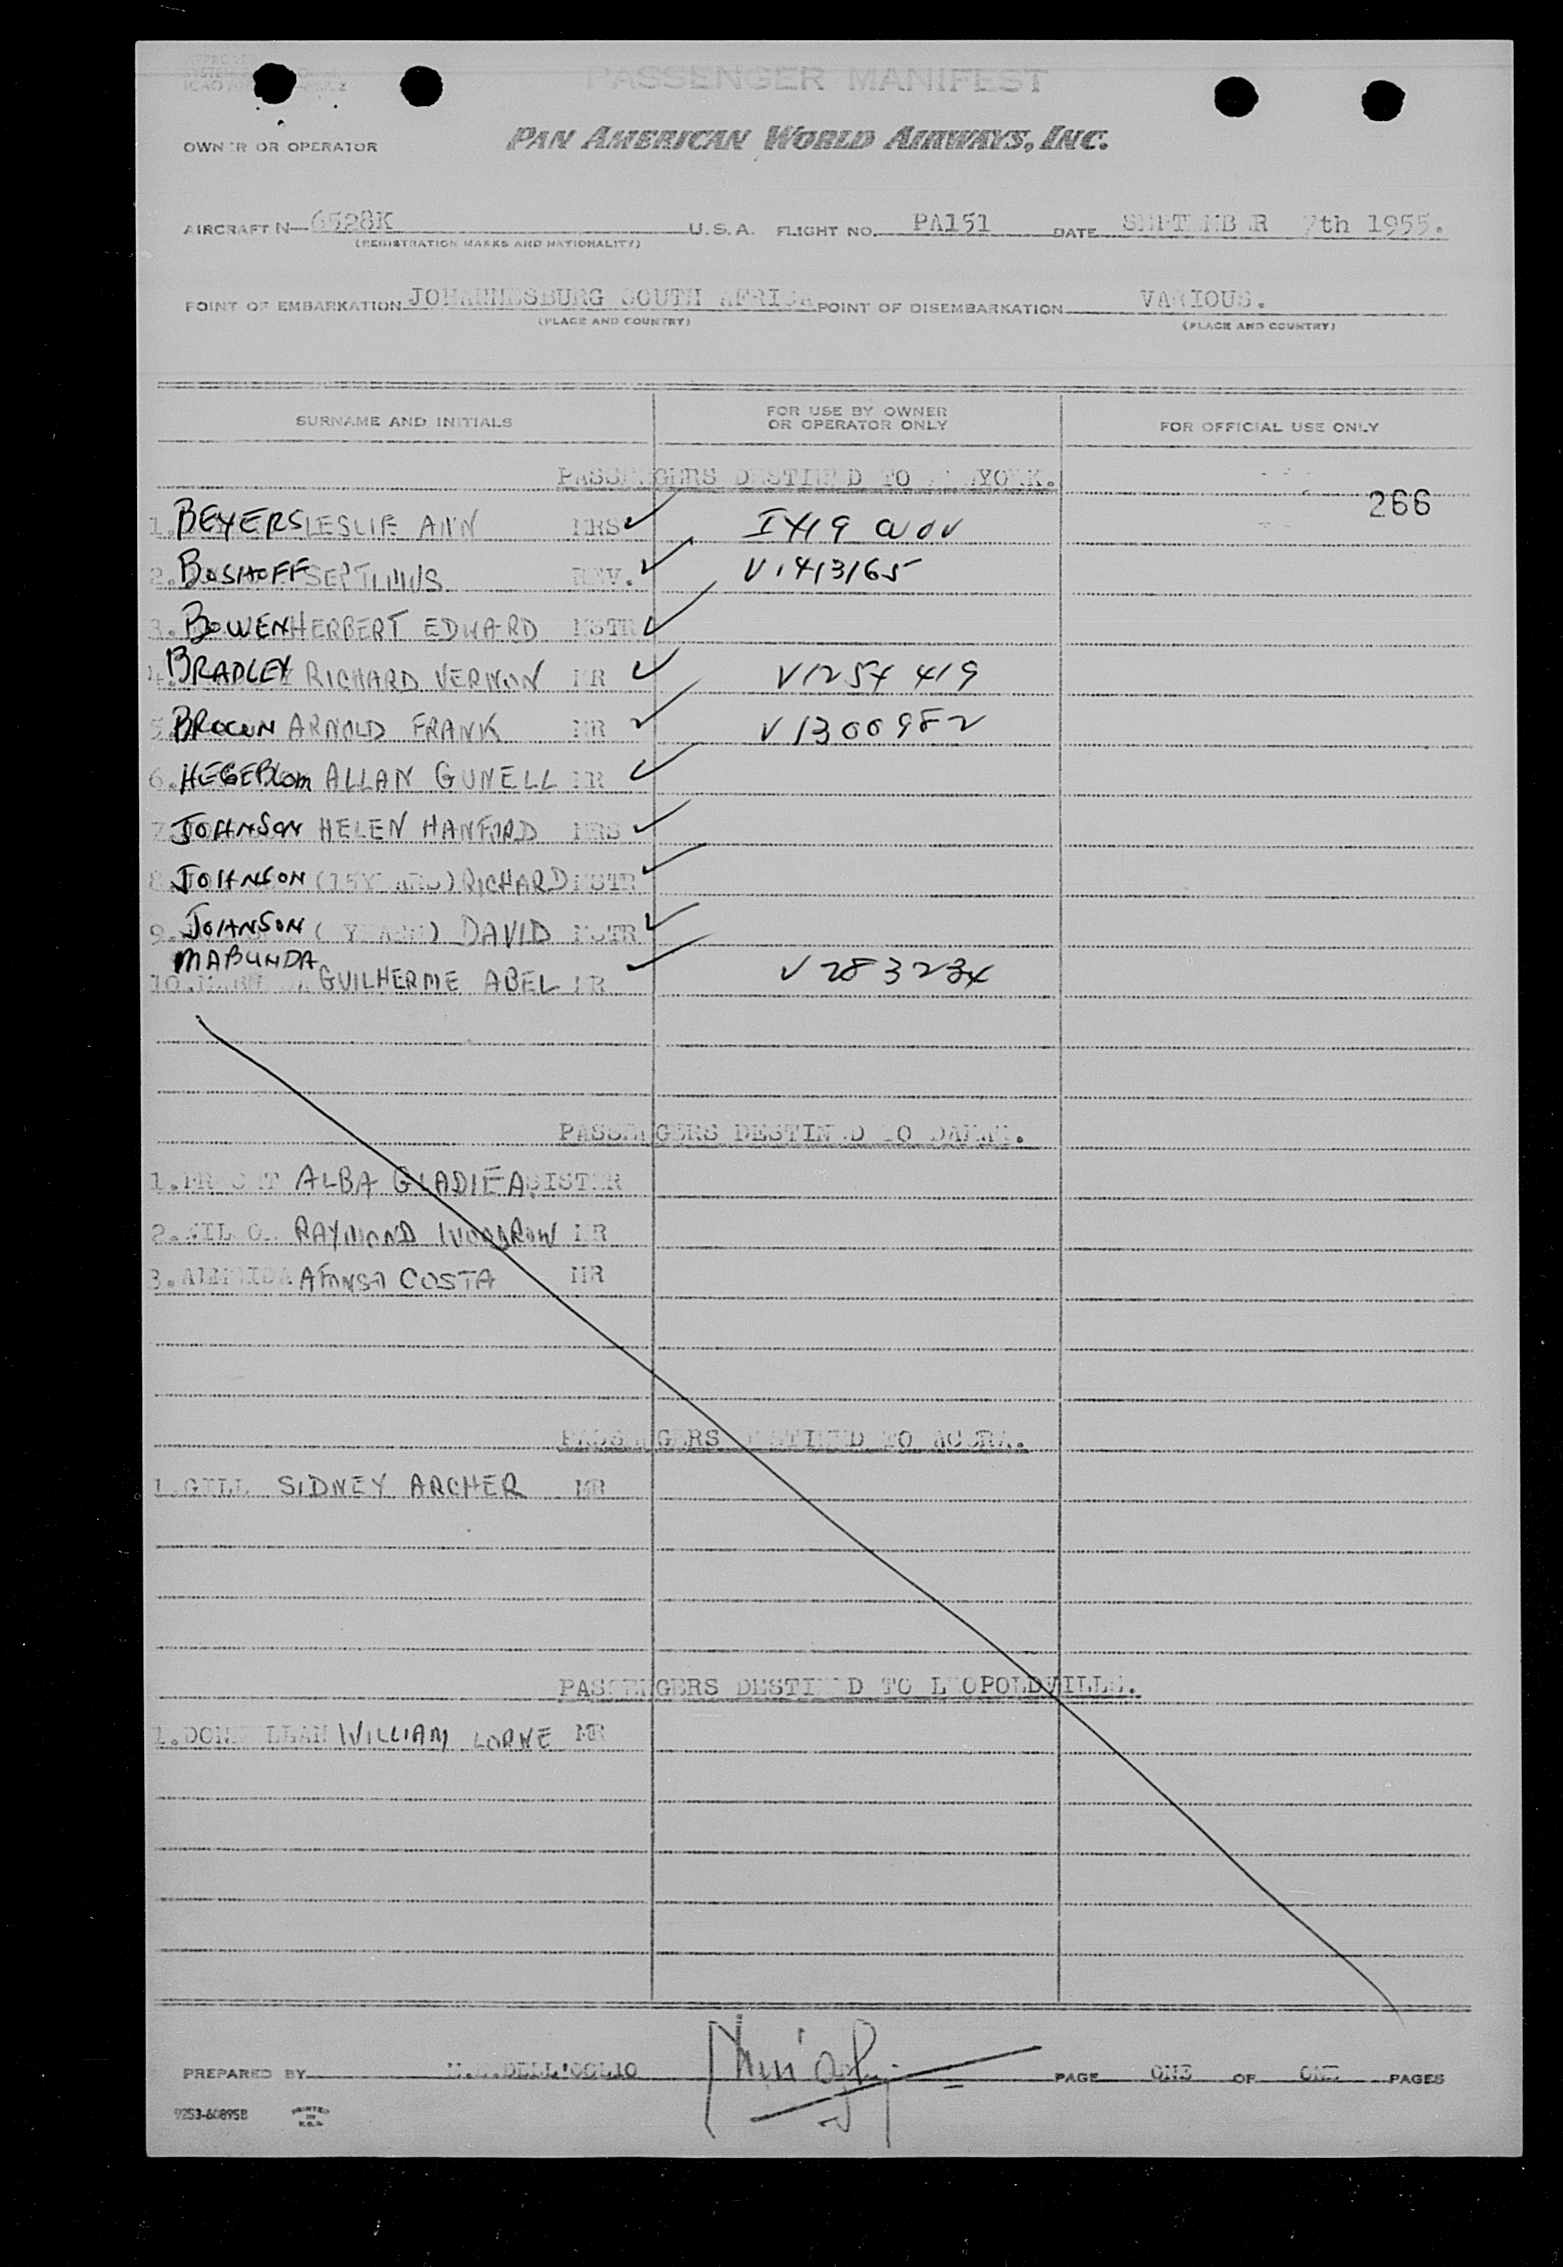 PASSENGER MANIFEST
OWNER OR OPERATOR PAN AMERICAN WORLD AIRWAYS, INC.
AIRCRAFT N- 6528K U.S.A. FLIGHT NO. PA151 DATE SEPTEMBER 7th 1955.
(REGISTRATION MARKS AND NATIONALITY)
POINT OF EMBARKATION JOHANNESBURG SOUTH AFRICA POINT OF DISEMBARKATION VARIOUS.
(PLACE AND COUNTRY) (PLACE AND COUNTRY)
SURNAME AND INITIALS FOR USE BY OWNER OR OPERATOR ONLY FOR OFFICIAL USE ONLY
PASSENGERS DESTINED TO NEWYORK.
266
1. BEYERS LESLIE ANN MRS ✓
2. BOSHOFF SEPTIMUS REV. ✓ V1413165
3. BOWEN HERBERT EDWARD MSTR ✓
4. BRADLEY RICHARD VERNON MR ✓ V1254 419
5. BROWN ARNOLD FRANK MR ✓ V1300982
6. HEGEBLOM ALLAN GUNELL MR ✓
7. JOHNSON HELEN HANFORD MRS ✓
8. JOHNSON (15YEARS) RICHARD MSTR ✓
9. JOHNSON ( YEARS) DAVID MSTR ✓
10. MABUNDA GUILHERME ABEL MR ✓ V283234
PASSENGERS DESTINED TO DAKAR.
1. ALBA GLADIEA SISTER
2. RAYMOND WOODROW MR
3. ALMEIDA AFONSO COSTA MR
PASSENGERS DESTINED TO ACCRA.
1. GILL SIDNEY ARCHER MR
PASSENGERS DESTINED TO LEOPOLDVILLE.
1. WILLIAM LORNE MR
PREPARED BY PAGE ONE OF ONE PAGES
9253-60895B PRINTED IN U.S.A.